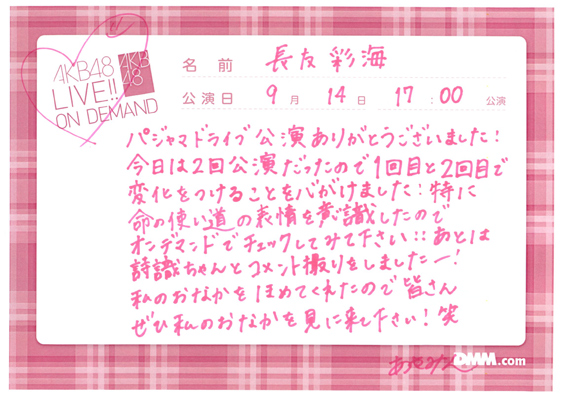 AKB48
LIVE!!
ON DEMAND
AKB
48
名前 長友彩海
公演日 9月 14日 17:00 公演
パジャマドライブ公演ありがとうございました!
今日は2回公演だったので1回目と2回目で
変化をつけることを心がけました!特に
命の使い道の表情を意識したので
オンデマンドでチェックしてみて下さい::あとは
詩識ちゃんとコメント撮りをしましたー!
私のおなかをほめてくれたので皆さん
ぜひ私のおなかを見に来て下さい!笑
DMM.com